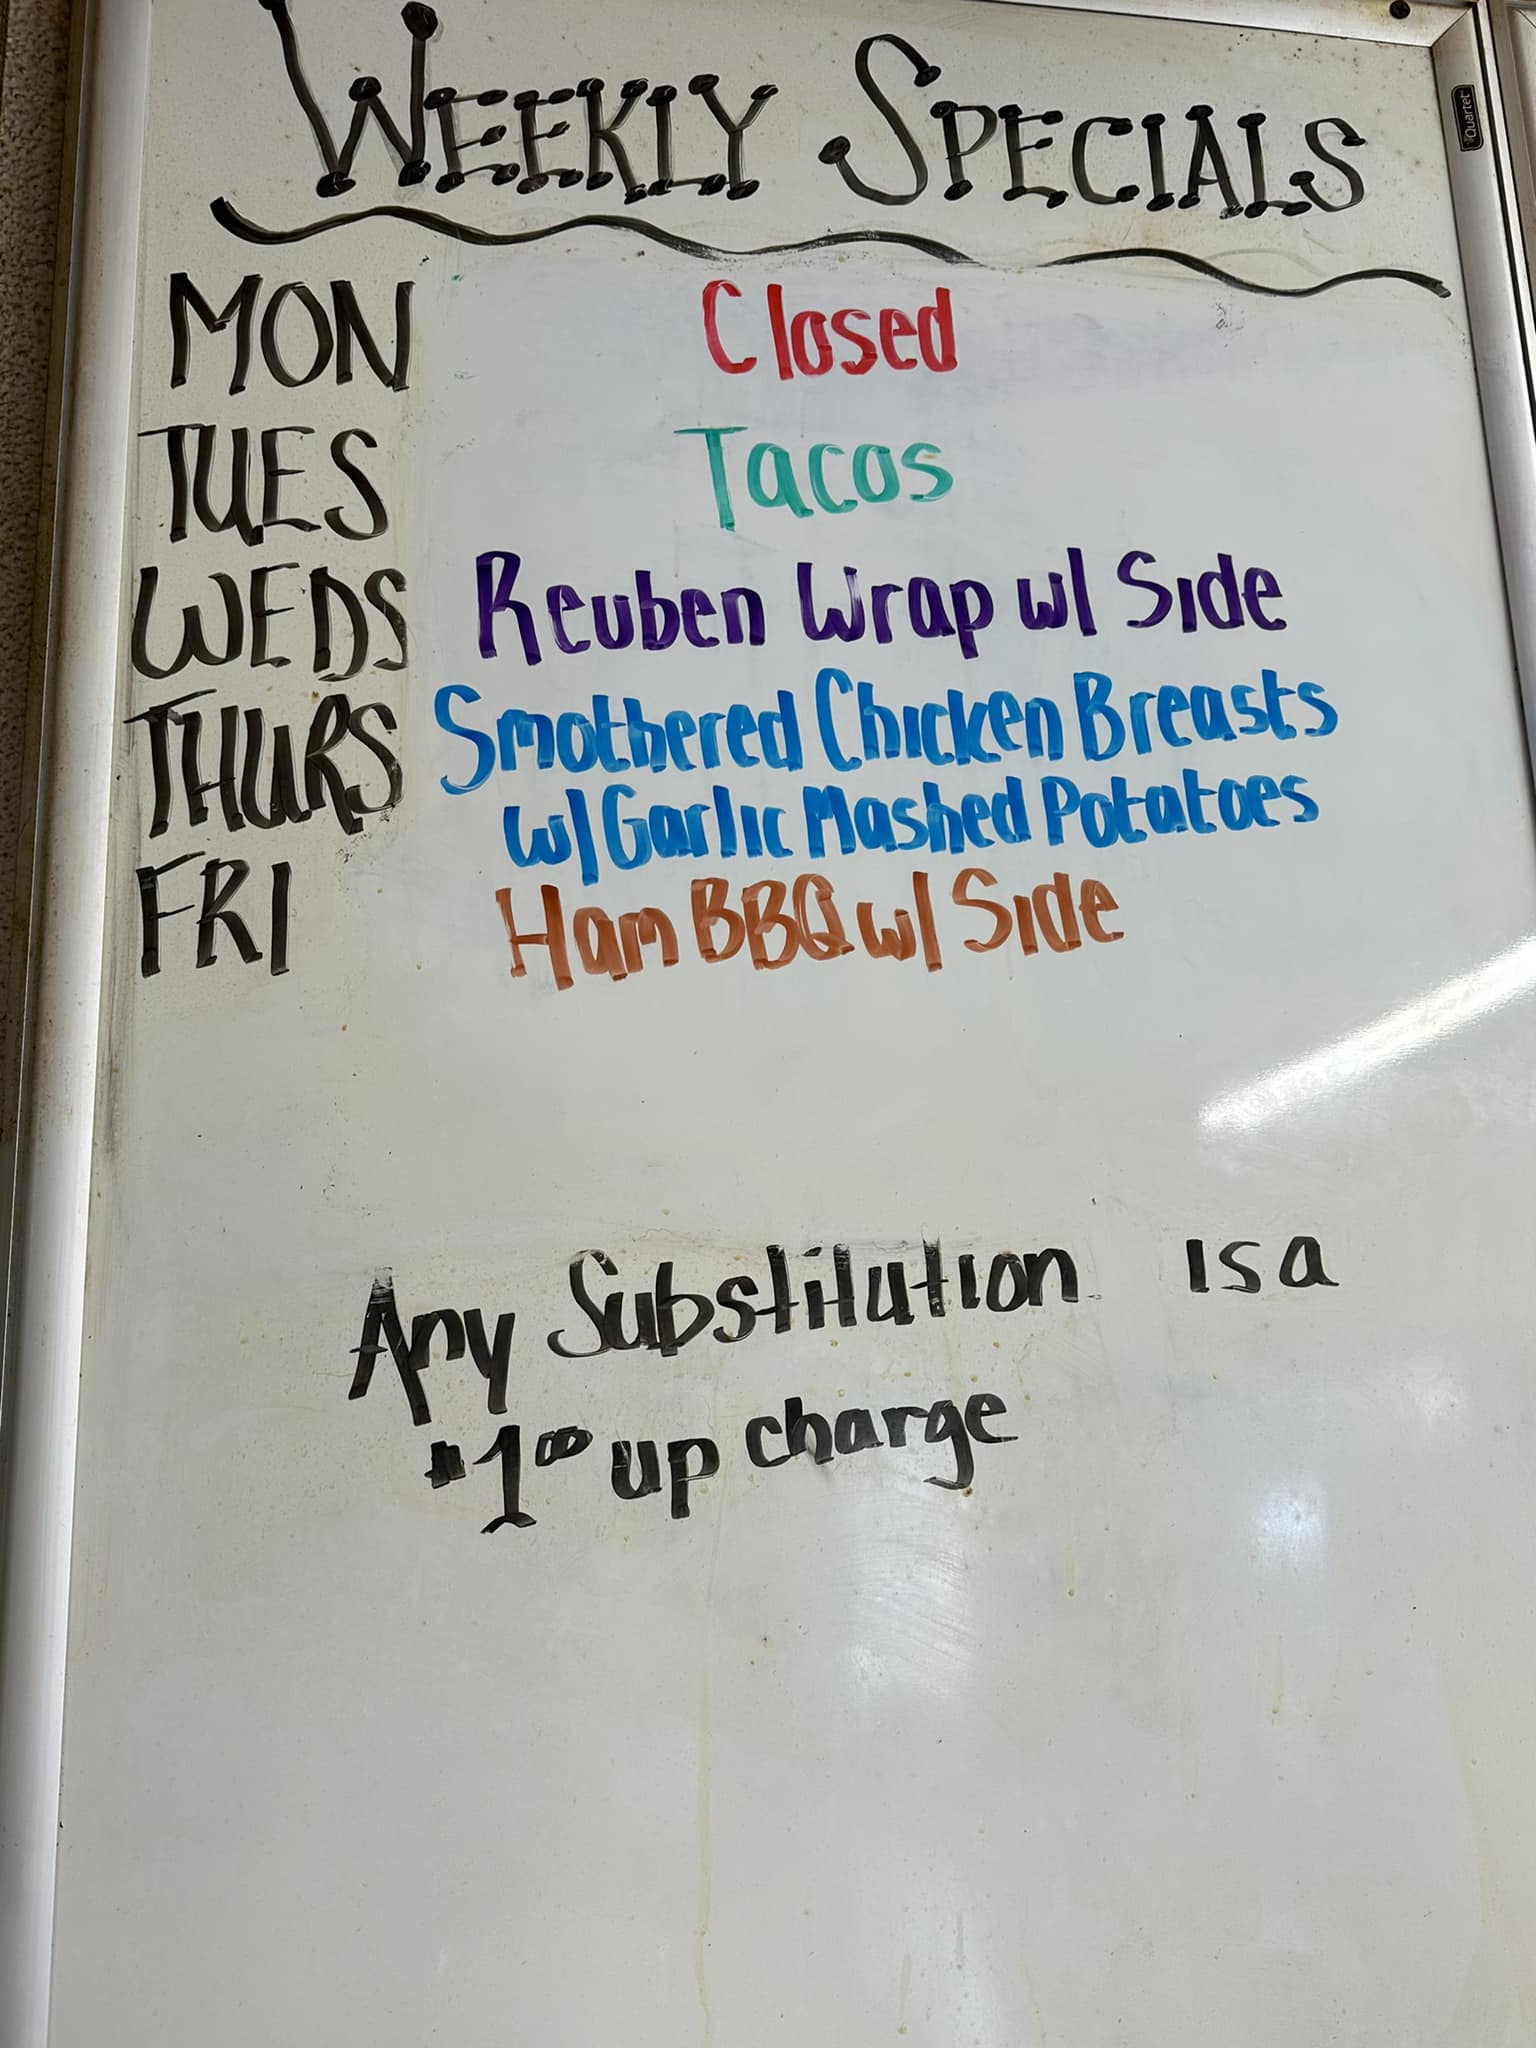 WEEKLY SPECIALS
Quartet
MON Closed
TUES Tacos
WEDS Reuben Wrap w/ Side
THURS Smothered Chicken Breasts
w/ Garlic Mashed Potatoes
FRI Ham BBQ w/ Side
Any Substitution is a
$1.00 up charge